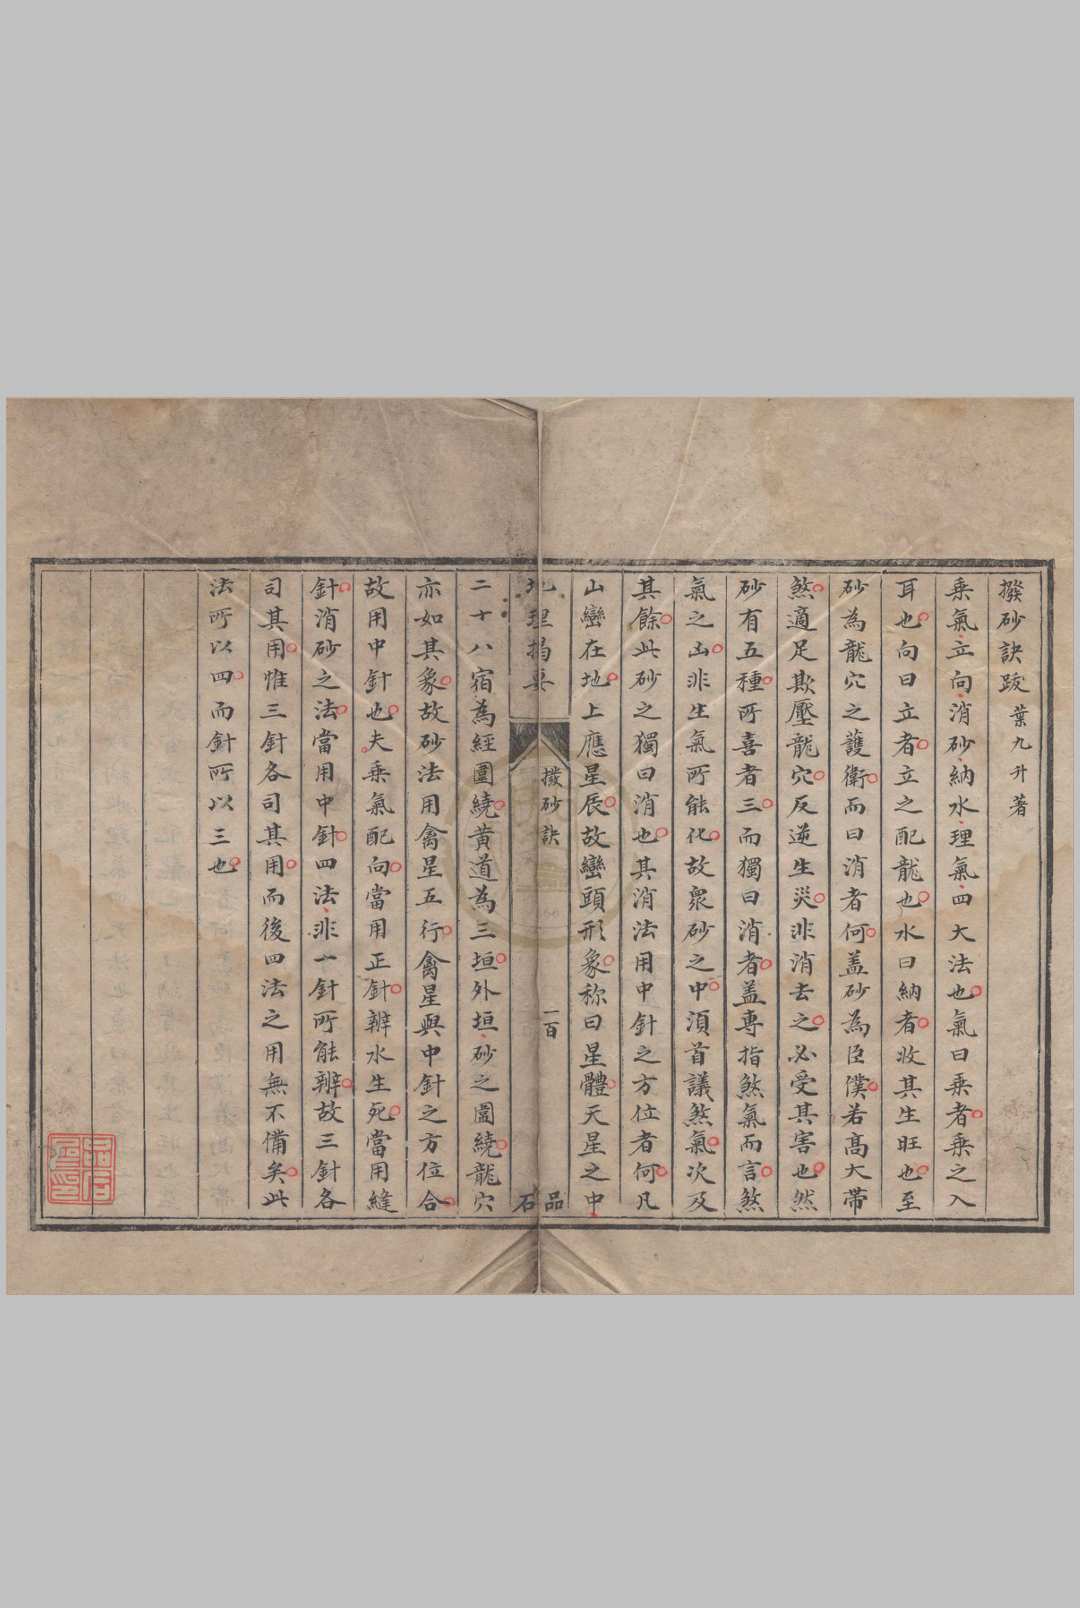 撥砂訣跋 葉九升著
乘氣立向消砂納水理氣四大法也氣曰乘者乘之入
耳也向曰立者立之配龍也水曰納者收其生旺也至
砂為龍穴之護衛而曰消者何蓋砂為臣僕若高大帶
煞適足欺壓龍穴反逆生災非消去之必受其害也然
砂有五種所喜者三而獨曰消者蓋專指煞氣而言煞
氣之凶非生氣所能化故眾砂之中須首議煞氣次及
其餘此砂之獨曰消也其消法用中針之方位者何凡
山巒在地上應星辰故巒頭形象称曰星體天星之中
地理揭要 撥砂訣 一百 品石
二十八宿為經圍繞黃道為三垣外垣砂之圍繞龍穴
亦如其象故砂法用禽星五行禽星與中針之方位合
故用中針也夫乘氣配向當用正針辨水生死當用縫
針消砂之法當用中針四法非一針所能辨故三針各
司其用惟三針各司其用而後四法之用無不備矣此
法所以四而針所以三也